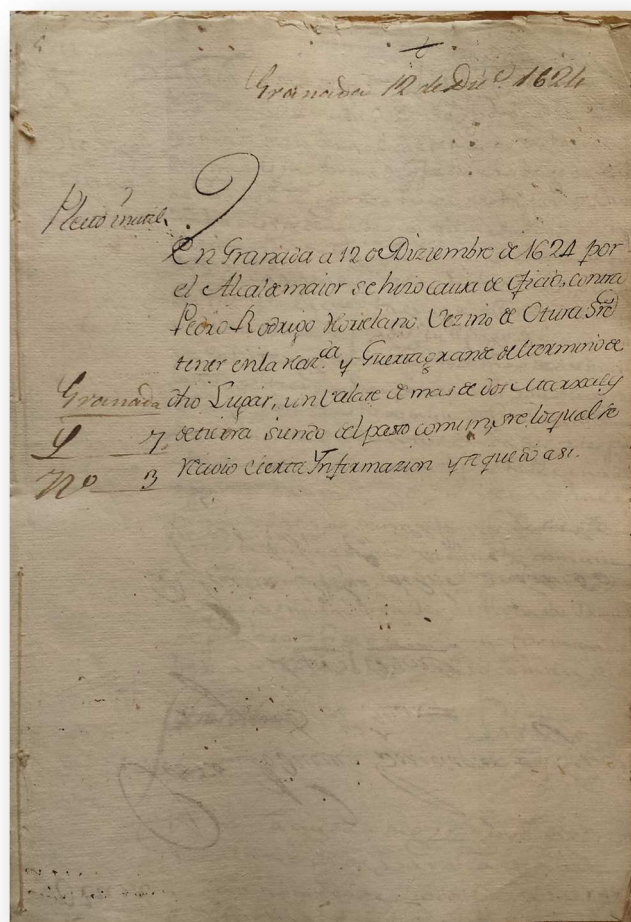 Granada 12 de Dizᵉ. 1624
Pleito inutil
En Granada a 12 de Diziembre de 1624 por
el Alcalde maior se hizo causa de oficio, contra
Pedro Rodrigo Vezino de Otura Sre
tener en la y Guerta grande del termino de
Granada
dho Lugar, un valate de mas de dos Marxales
L 7
de tierra siendo del paso comun, sre, lo qual se
Nº 3
recivio cierta Informazion y se quedo asi.